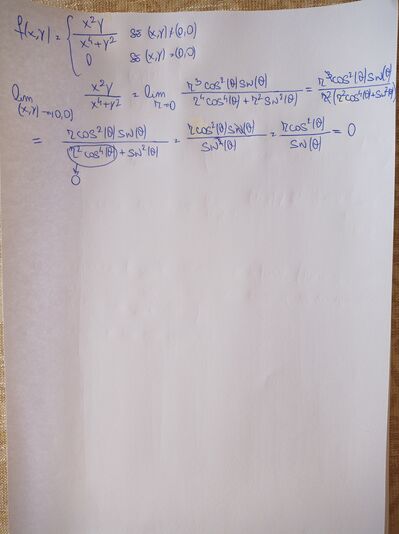 f(x,y) = { x²y / (x⁴+y²) se (x,y)≠(0,0)
0 se (x,y)=(0,0)
lim (x,y)→(0,0) x²y / (x⁴+y²) = lim r→0 r³cos²(θ)sin(θ) / (r⁴cos⁴(θ)+r²sin²(θ)) = r³cos²(θ)sin(θ) / r²(r²cos⁴(θ)+sin²(θ))
= r cos²(θ)sin(θ) / (r²cos⁴(θ)+sin²(θ)) = r cos²(θ)sin(θ) / sin²(θ) = r cos²(θ) / sin(θ) = 0
0